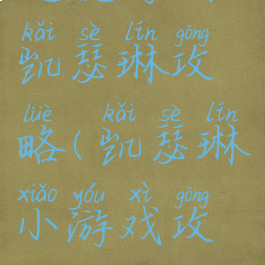 kǎi sè lín gōng
凯瑟琳攻
lüè kǎi sè lín
略(凯瑟琳
xiǎo yóu xì gōng
小游戏攻